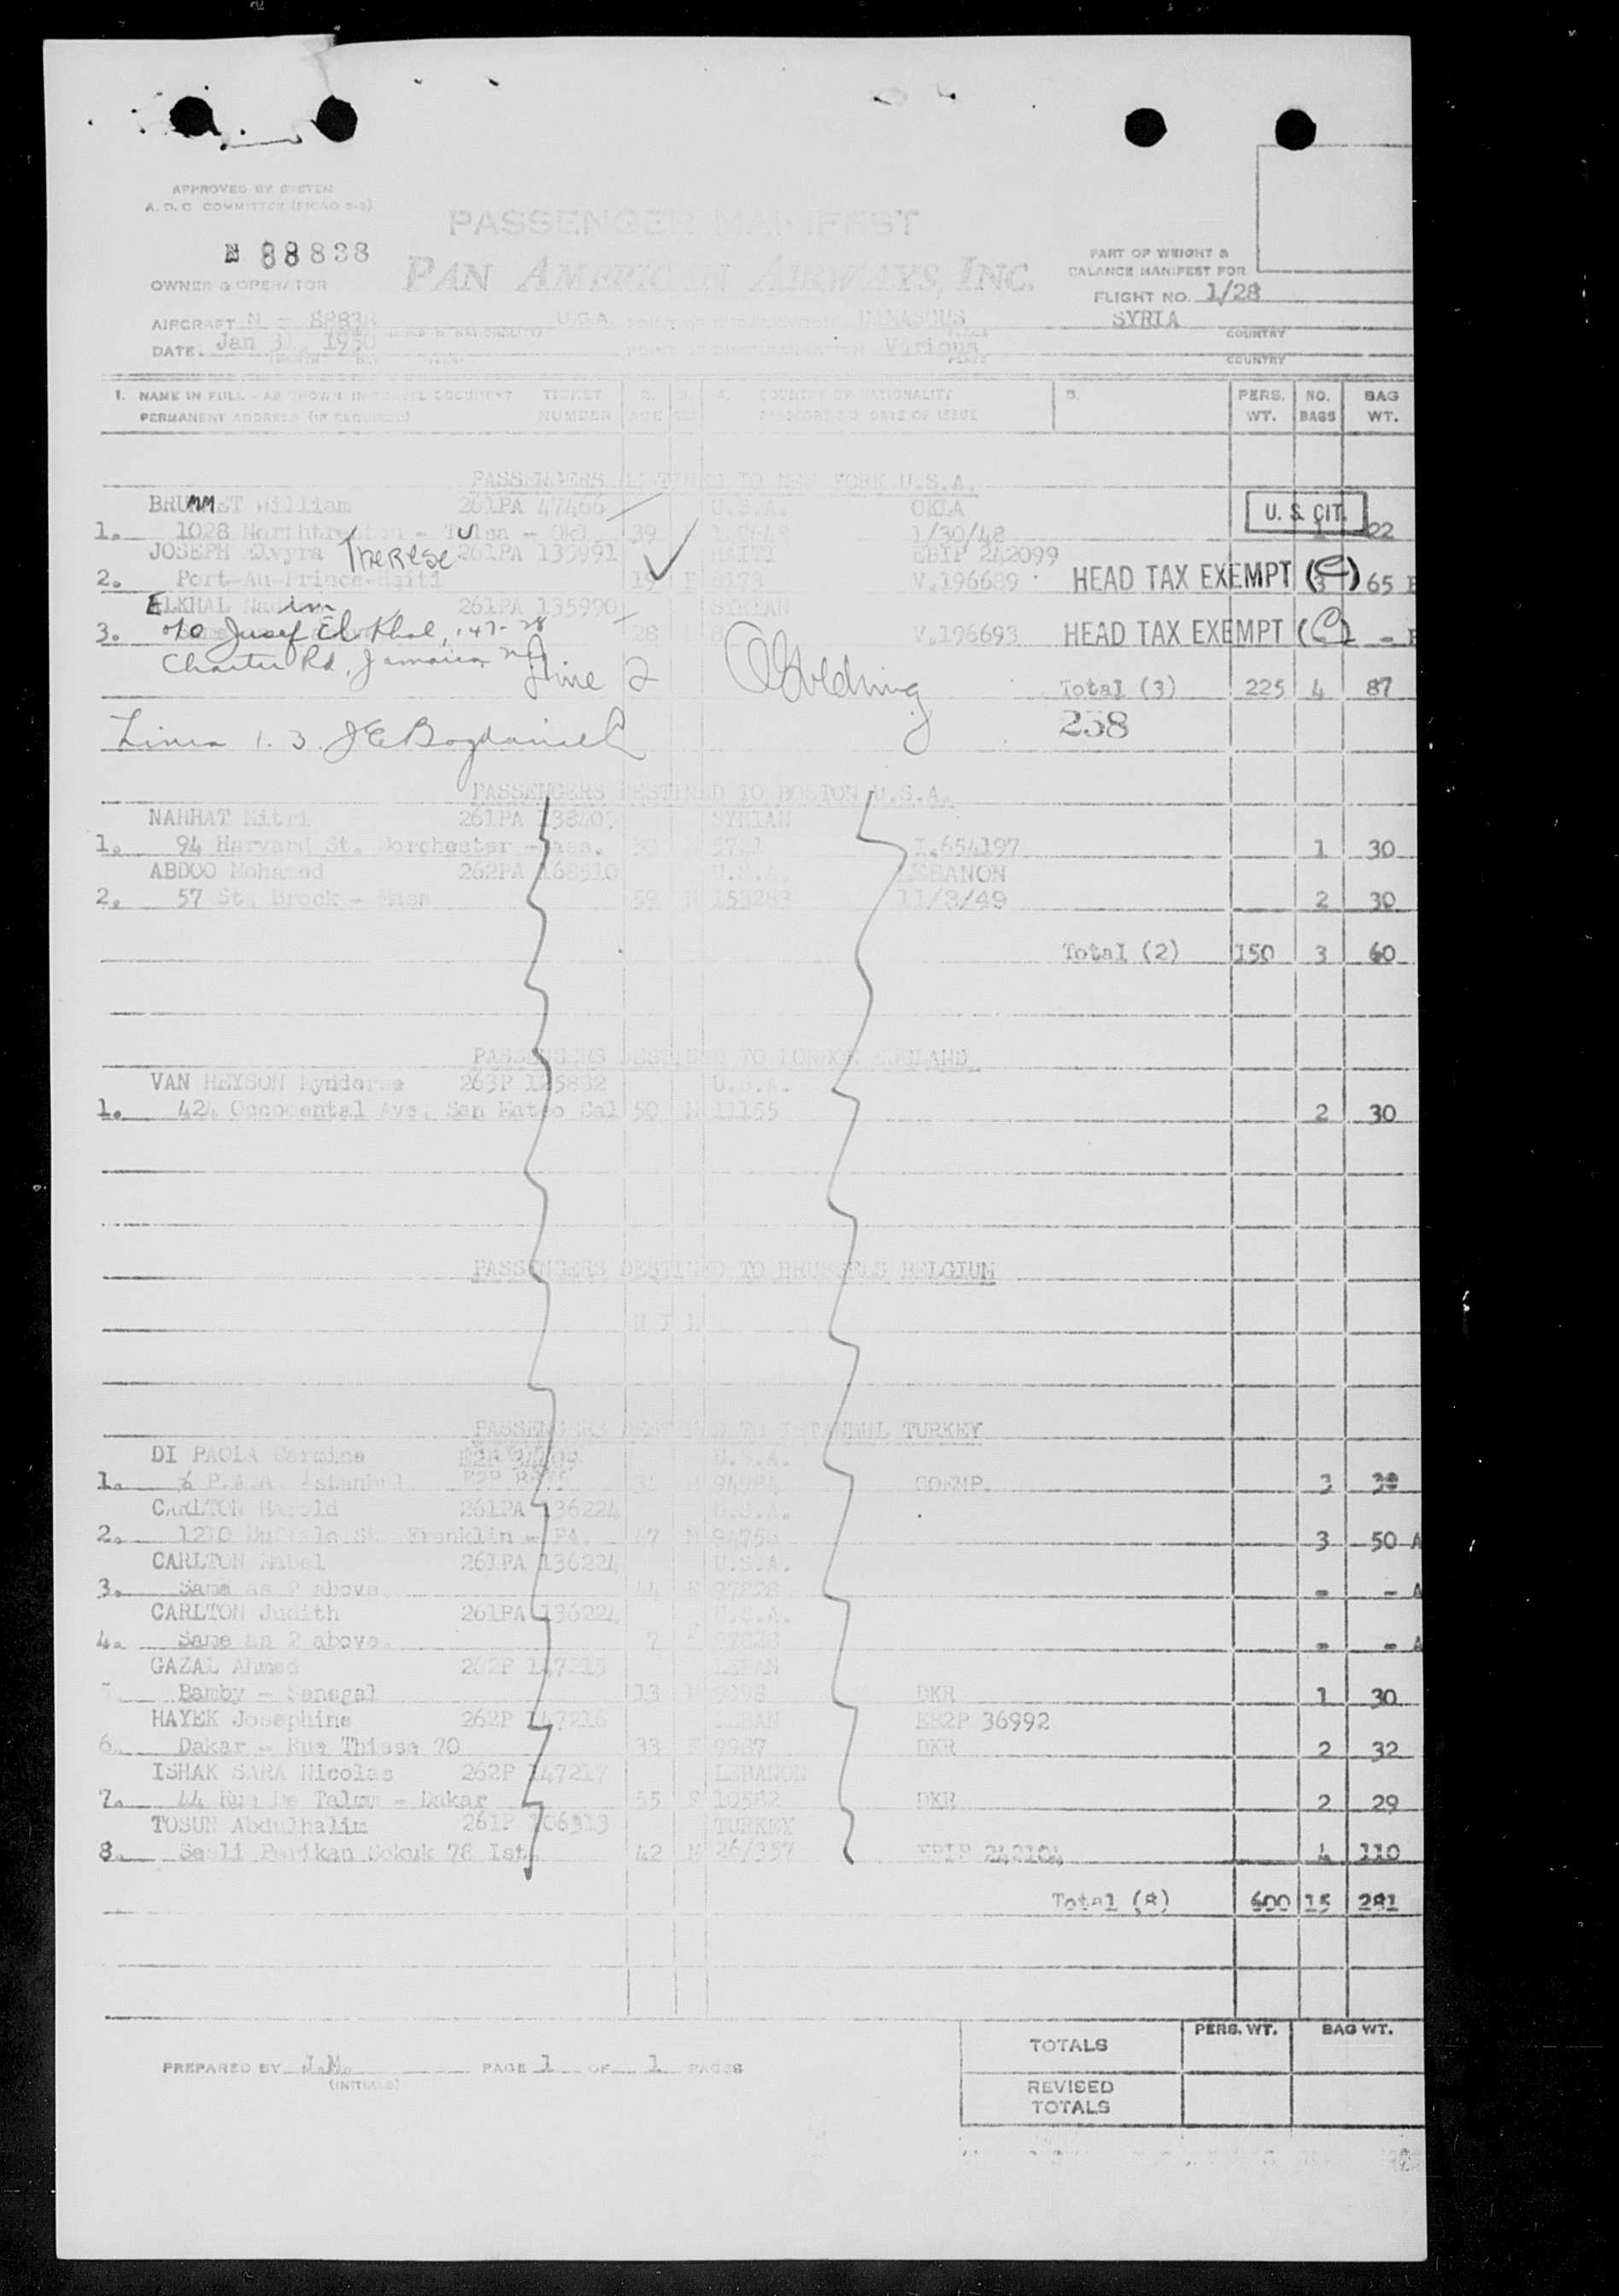 APPROVED BY SYSTEM
A.D.C. COMMITTEE (PICAO 2-2)
PASSENGER MANIFEST
N 88838
PAN AMERICAN AIRWAYS, INC.
PART OF WEIGHT &
BALANCE MANIFEST FOR
OWNER & OPERATOR
FLIGHT NO. 1/28
AIRCRAFT N - 88838 U.S.A. POINT OF EMBARKATION DAMASCUS SYRIA
COUNTRY
DATE. Jan 31, 1950 POINT OF DISEMBARKATION Various
PLACE COUNTRY
1. NAME IN FULL - AS SHOWN IN TRAVEL DOCUMENT TICKET 2. 3. 4. COUNTRY OF NATIONALITY 5. PERS. NO. BAG
PERMANENT ADDRESS (IF REQUIRED) NUMBER AGE SEX PASSPORT NO. DATE OF ISSUE WT. BAGS WT.
PASSENGERS DESTINED TO NEW YORK U.S.A.
BRUMMET William 261PA 47466 U.S.A. OKLA U.S. CIT.
1. 1028 - Tulsa - Okl 39 1/30/48 1 22
JOSEPH Elvyra Therese 261PA 135991 HAITI EBIP 242099
2. Port-Au-Prince-Haiti 19 F V.196689 HEAD TAX EXEMPT (C) 3 65
ELKHAL Nadim 261PA 135990 SYRIAN
3. c/o Jusef El Khal, 147-28 28 V.196693 HEAD TAX EXEMPT (C) - -
Charter Rd, Jamaica NY
Line 2 Golding Total (3) 225 4 87
238
Lines 1. 3. J E Bogdaniel
PASSENGERS DESTINED TO BOSTON U.S.A.
NAHHAT Mitri 261PA 138409 SYRIAN
1. 94 Harvard St. Dorchester - Mass. I.654197 1 30
ABDOO Mohamed 262PA 168510 U.S.A. LEBANON
2. 57 St. Brock - Mass 59 M 153283 11/3/49 2 30
Total (2) 150 3 60
PASSENGERS DESTINED TO LONDON ENGLAND
VAN HEYSON Rynderse 263P 125882 U.S.A.
1. 424 Occocental Ave. San Mateo Cal 50 M 11155 2 30
PASSENGERS DESTINED TO BRUSSELS BELGIUM
N I L
PASSENGERS DESTINED TO ISTANBUL TURKEY
DI PAOLA Carmine U.S.A.
1. % P.A.A. Istanbul 34 M 94984 COFMP. 3 30
CARLTON Harold 261PA 136224 U.S.A.
2. 1210 Buffalo St. Franklin - PA. 47 M 94756 3 50 A
CARLTON Mabel 261PA 136224 U.S.A.
3. Same as 2 above. 44 F 97828 - - A
CARLTON Judith 261PA 136224 U.S.A.
4. Same as 2 above. 7 F 97828 - - A
GAZAL Ahmed 262P 147215 LEBAN
5. Bamby - Senegal 13 M 9098 DKR 1 30
HAYEK Josephine 262P 147216 LEBAN EB2P 36992
6. Dakar - Rue Thiess 70 33 F 9987 DKR 2 32
ISHAK SARA Nicolas 262P 147217 LEBANON
7. 44 Rue De Talmu - Dakar 55 F 10582 DKR 2 29
TOSUN Abdulhalim 261P 106313 TURKEY
8. Seali Perikan Sokuk 78 Ist. 42 M 26/357 EBIP 242104 4 110
Total (8) 600 15 281
PERS. WT. BAG WT.
TOTALS
PREPARED BY J.M. PAGE 1 OF 1 PAGES
(INITIALS)
REVISED
TOTALS